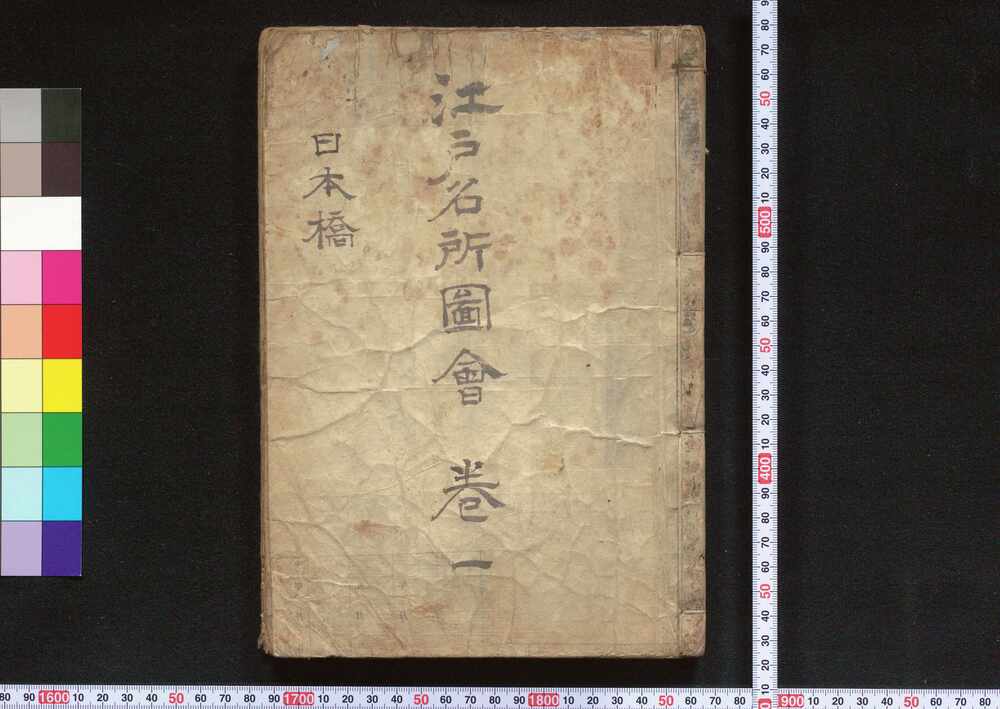 江戸名所圖會 卷一
日本橋
90
80
70
60
50
40
30
20
10
500
90
80
70
60
50
40
30
20
10
400
90
80
70
60
50
40
30
20
10
80 90 1600 10 20 30 40 50 60 70 80 90 1700 10 20 30 40 50 60 70 80 90 1800 10 20 30 40 50 60 70 80 900 10 20 30 40 50 60 70 80